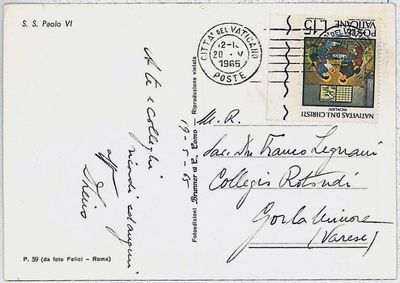 S. S. Paolo VI
CITTA' DEL VATICANO
12-1
20 - V
1965
POSTE
POSTE VATICANE
L.15
NATIVITAS D.N.I. CHRISTI
MCMLXIV
A te e colleghi
ricordi ed auguri
19-5-65
Fotoedizioni Brunner & C. Como — Riproduzione vietata
M. R.
Sac. Dr. Franco Legnani
Collegio Rotondi
Gorla Minore
(Varese)
P. 59 (da foto Felici - Roma)